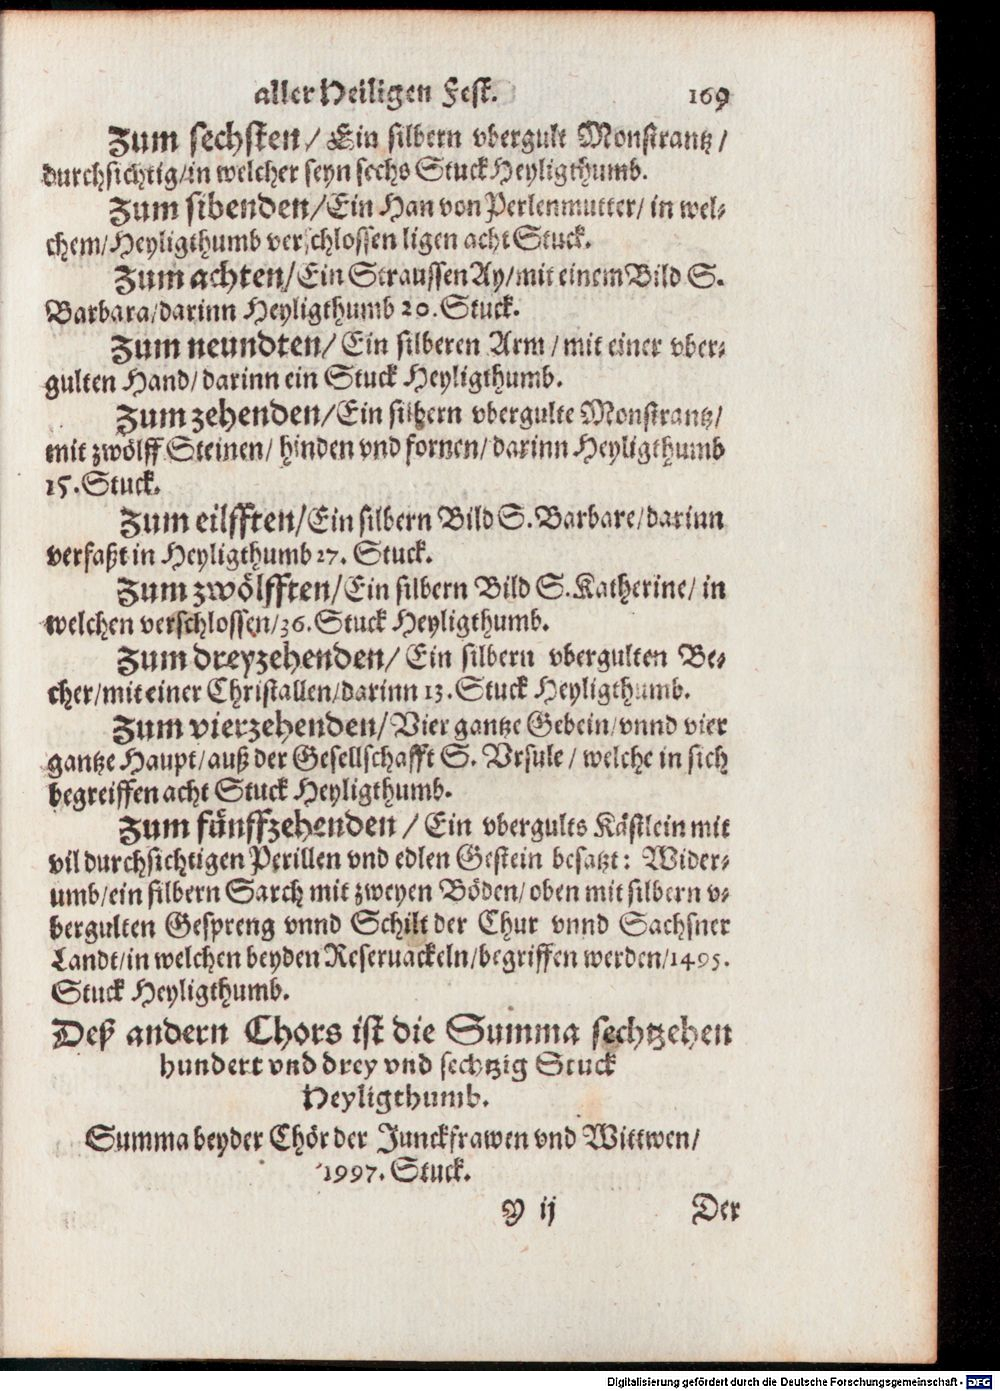 aller Heiligen Fest. 169
Zum sechsten/ Ein silbern vbergult Monstrantz/
durchsichtig/in welcher seyn sechs Stuck Heyligthumb.
Zum sibenden/Ein Han von Perlenmutter/ in wel-
chem/Heyligthumb verschlossen ligen acht Stuck.
Zum achten/Ein Straussen Ay/mit einem Bild S.
Barbara/darinn Heyligthumb 20. Stuck.
Zum neundten/ Ein silberen Arm/mit einer vber-
gulten Hand/darinn ein Stuck Heyligthumb.
Zum zehenden/Ein silbern vbergulte Monstrantz/
mit zwölff Steinen/ hinden vnd fornen/darinn Heyligthumb
15. Stuck.
Zum eilfften/Ein silbern Bild S. Barbare/darinn
verfaßt in Heyligthumb 27. Stuck.
Zum zwölfften/Ein silbern Bild S. Katherine/ in
welchen verschlossen/36. Stuck Heyligthumb.
Zum dreyzehenden/ Ein silbern vbergulten Be-
cher/mit einer Christallen/darinn 13. Stuck Heyligthumb.
Zum vierzehenden/Vier gantze Gebein/vnnd vier
gantze Haupt/auß der Gesellschafft S. Vrsule/ welche in sich
begreiffen acht Stuck Heyligthumb.
Zum fünffzehenden/ Ein vbergults Kästlein mit
vil durchsichtigen Perillen vnd edlen Gestein besatzt: Wider-
umb/ein silbern Sarch mit zweyen Böden/oben mit silbern v-
bergulten Gespreng vnnd Schilt der Chur vnnd Sachsner
Landt/in welchen beyden Reseruackeln/begriffen werden/1495.
Stuck Heyligthumb.
Deß andern Chors ist die Summa sechtzehen
hundert vnd drey vnd sechtzig Stuck
Heyligthumb.
Summa beyder Chör der Junckfrawen vnd Wittwen/
1997. Stuck.
Y ij Der
Digitalisierung gefördert durch die Deutsche Forschungsgemeinschaft - DFG